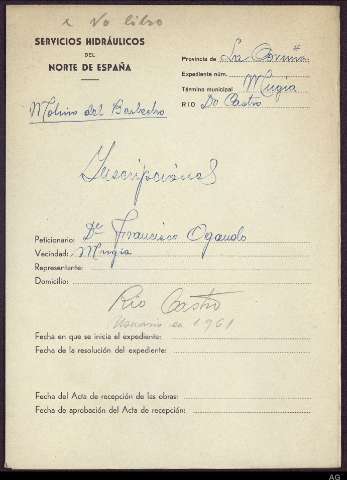 No libro
SERVICIOS HIDRÁULICOS
DEL
NORTE DE ESPAÑA
Provincia de La Coruña
Expediente núm.
Término municipal Mugia
RIO Do Castro
Molino del Barbecho
Inscripciónes
Peticionario: De Francisco Ogando
Vecindad: Mugia
Representante:
Domicilio:
Rio Castro
Usuario en 1961
Fecha en que se inicia el expediente:
Fecha de la resolución del expediente:
Fecha del Acta de recepción de las obras:
Fecha de aprobación del Acta de recepción:
AG